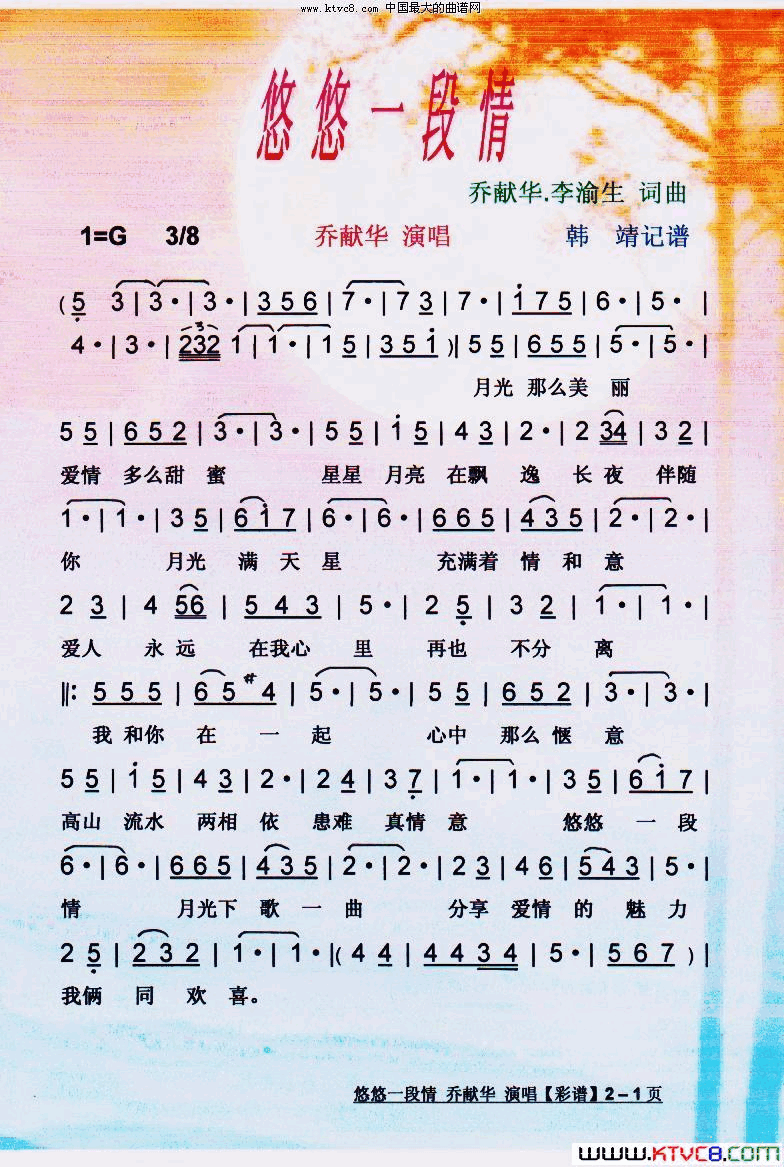 www.ktvc8.com 中国最大的曲谱网
悠悠一段情
乔献华.李渝生 词曲
1=G 3/8 乔献华 演唱 韩 靖记谱
( 5 3 | 3· | 3· | 3 5 6 | 7· | 7 3 | 7· | 1 7 5 | 6· | 5· |
4· | 3· | 2 3 2 1 | 1· | 1 5 | 3 5 1 ) | 5 5 | 6 5 5 | 5· | 5· |
月光 那么美 丽
5 5 | 6 5 2 | 3· | 3· | 5 5 | 1 5 | 4 3 | 2· | 2 3 4 | 3 2 |
爱情 多么甜 蜜 星星 月亮 在飘 逸 长夜 伴随
1· | 1· | 3 5 | 6 1 7 | 6· | 6· | 6 6 5 | 4 3 5 | 2· | 2· |
你 月光 满 天 星 充满着 情 和 意
2 3 | 4 5 6 | 5 4 3 | 5· | 2 5 | 3 2 | 1· | 1· |
爱人 永 远 在我心 里 再也 不分 离
‖: 5 5 5 | 6 5 #4 | 5· | 5· | 5 5 | 6 5 2 | 3· | 3· |
我 和你 在 一 起 心中 那么 惬 意
5 5 | 1 5 | 4 3 | 2· | 2 4 | 3 7 | 1· | 1· | 3 5 | 6 1 7 |
高山 流水 两相 依 患难 真情 意 悠悠 一 段
6· | 6· | 6 6 5 | 4 3 5 | 2· | 2· | 2 3 | 4 6 | 5 4 3 |
情 月光下 歌 一 曲 分享 爱情 的 魅 力
2 5 | 2 3 2 | 1· | 1· | ( 4 4 | 4 4 3 4 | 5· | 5 6 7 ) |
我俩 同 欢 喜。
悠悠一段情 乔献华 演唱【彩谱】2－1页
www.KTVC8.com